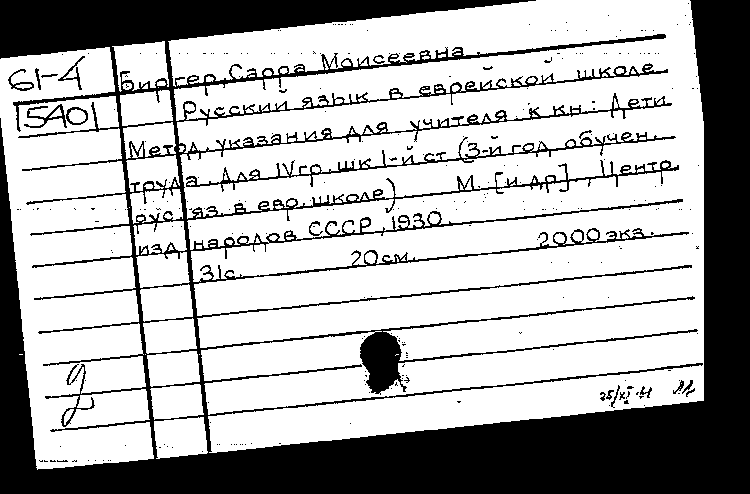 61-4 Биргер, Сарра Моисеевна.
5401 Русский язык в еврейской школе
Метод. указания для учителя к кн: Дети
труда. Для IV гр. шк I-й ст (3-й год обучен.
рус яз. в евр. школе) М. [и др], Центр.
изд народов СССР, 1930.
31с. 20см. 2000 экз.
2